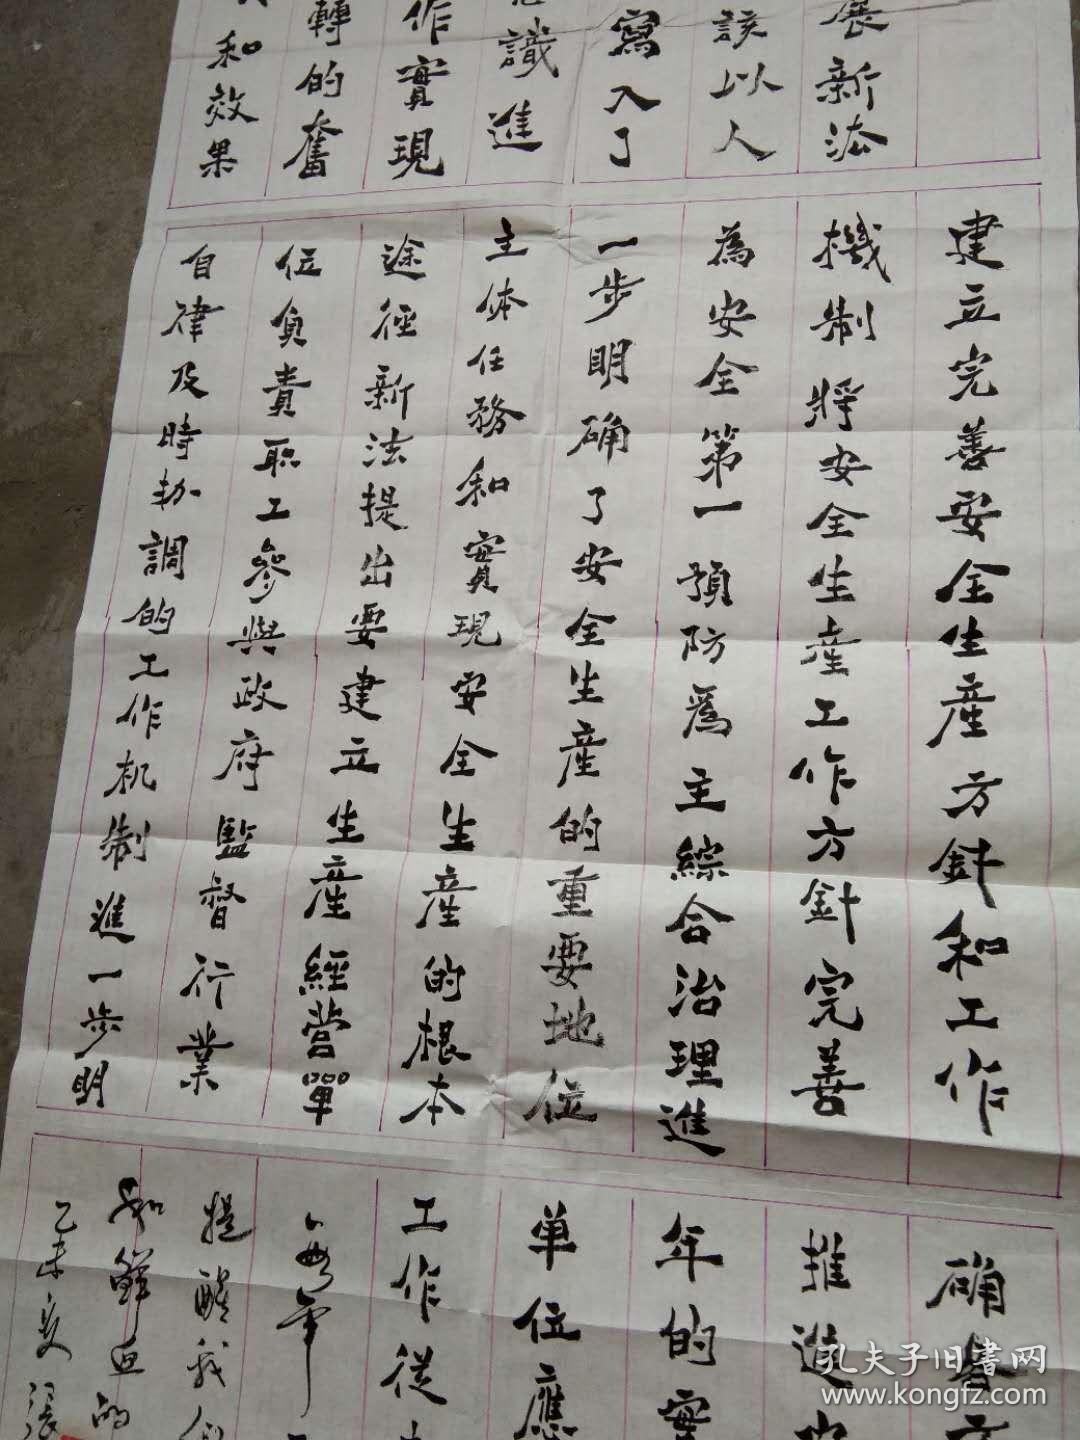 展新法
該以人
寫入了
識進
作實現
轉的奮
和效果
建立完善安全生産方針和工作
機制將安全生産工作方針完善
為安全第一預防爲主綜合治理進
一步明确了安全生産的重要地位
主体任務和實現安全生産的根本
途徑新法提出要建立生産經營單
位負責职工參與政府監督行業
自律及時協調的工作机制進一步明
确
推進
年的實
单位應
工作從
每年
提醒我们
和鲜血的
乙未夏張
孔夫子旧書网
www.kongfz.com